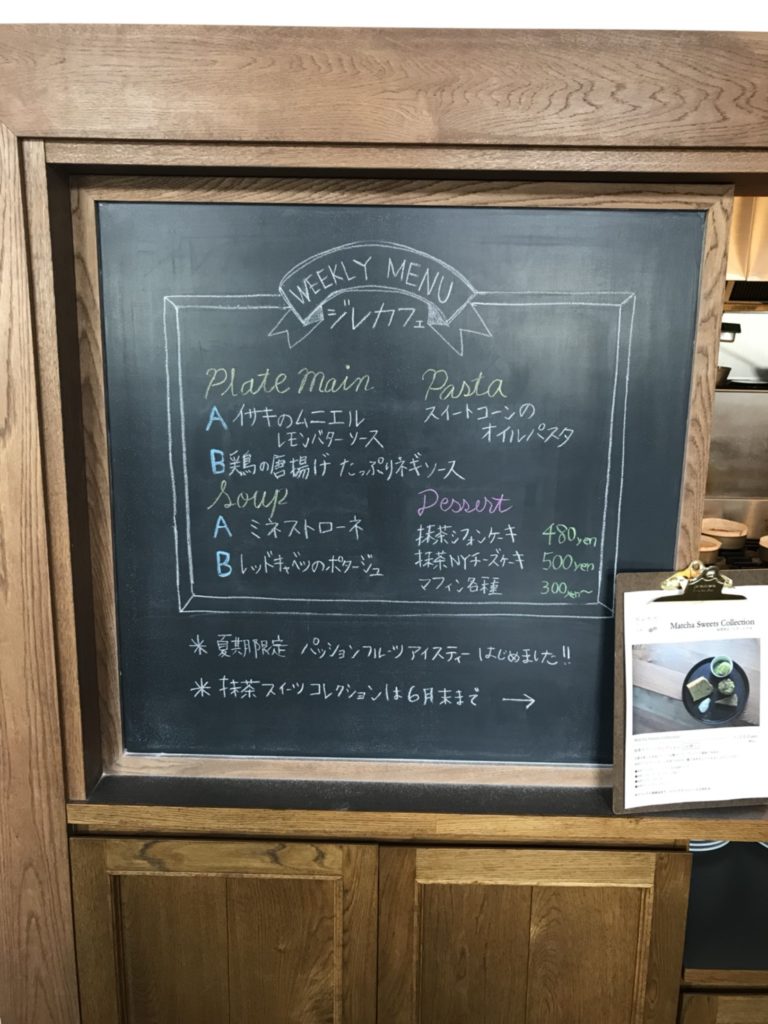 WEEKLY MENU
ジレカフェ
Plate Main
A イサキのムニエル
レモンバターソース
B 鶏の唐揚げ たっぷりネギソース
Soup
A ミネストローネ
B レッドキャベツのポタージュ
Pasta
スイートコーンの
オイルパスタ
Dessert
抹茶シフォンケーキ 480yen
抹茶NYチーズケーキ 500yen
マフィン各種 300yen~
* 夏期限定 パッションフルーツアイスティー はじめました!!
* 抹茶スイーツコレクションは6月末まで →
Matcha Sweets Collection